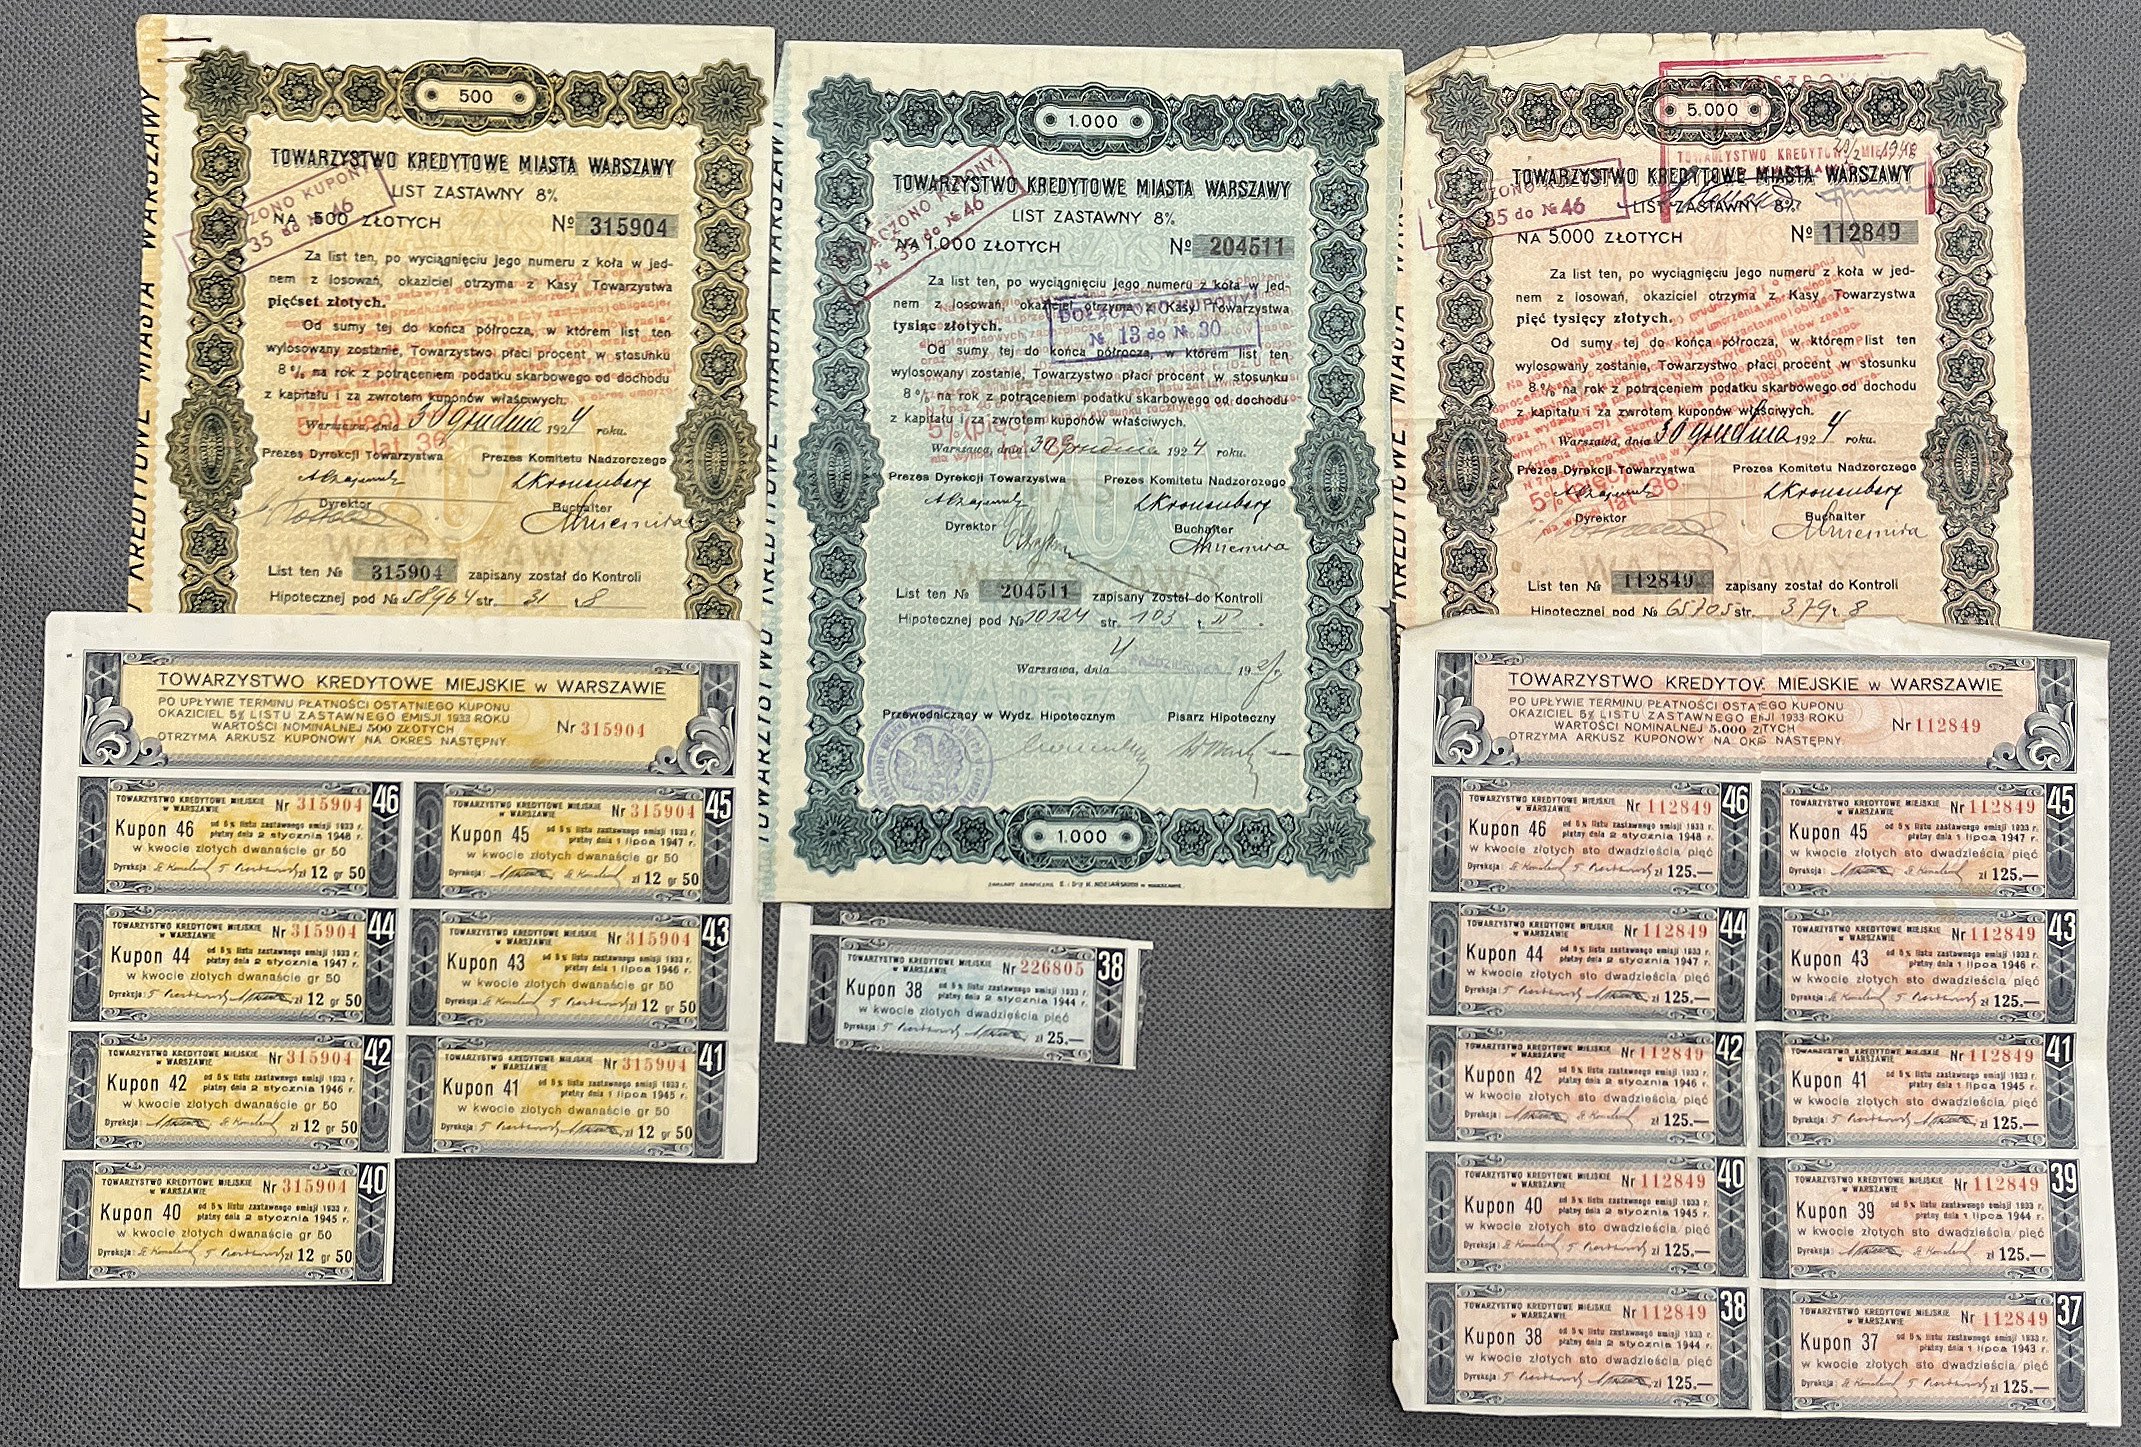 500
TOWARZYSTWO KREDYTOWE MIASTA WARSZAWY
LIST ZASTAWNY 8%
NA 500 ZŁOTYCH
№ 315904
KUPONY
35 do № 46
Za list ten, po wyciągnięciu jego numeru z koła w jed-
nem z losowań, okaziciel otrzyma z Kasy Towarzystwa
pięćset złotych.
Od sumy tej do końca półrocza, w którem list ten
wylosowany zostanie, Towarzystwo płaci procent w stosunku
8% na rok z potrąceniem podatku skarbowego od dochodu
z kapitału i za zwrotem kuponów właściwych.
Warszawa, dnia 30 grudnia 1924 roku.
5% (pięć)
lat 36
Prezes Dyrekcji Towarzystwa Prezes Komitetu Nadzorczego
LKronenberg
Dyrektor Buchalter
List ten № 315904 zapisany został do Kontroli
Hipotecznej pod № 58964 str. 31 t. 8
KREDYTOWE MIASTA WARSZAWY
1.000
TOWARZYSTWO KREDYTOWE MIASTA WARSZAWY
LIST ZASTAWNY 8%
NA 1.000 ZŁOTYCH
№ 204511
KUPONY
№ 35 do № 46
Za list ten, po wyciągnięciu jego numeru z koła w jed-
nem z losowań, okaziciel otrzyma z Kasy Towarzystwa
tysiąc złotych.
DOŁĄCZONO KUPONY
№ 13 do № 30
Od sumy tej do końca półrocza, w którem list ten
wylosowany zostanie, Towarzystwo płaci procent w stosunku
8% na rok z potrąceniem podatku skarbowego od dochodu
z kapitału i za zwrotem kuponów właściwych.
5% (pięć)
Warszawa, dnia 30 Grudnia 1924 roku.
Prezes Dyrekcji Towarzystwa Prezes Komitetu Nadzorczego
LKronenberg
Dyrektor Buchalter
List ten № 204511 zapisany został do Kontroli
Hipotecznej pod № 10124 str. 103 t. II
Warszawa, dnia 4 PAŹDZIERNIKA 192
Przewodniczący w Wydz. Hipotecznym Pisarz Hipoteczny
1.000
TOWARZYSTWO KREDYTOWE MIASTA WARSZAWY
5.000
TOWARZYSTWO KREDYTOWE MIEJSKIE
20/2 1948
TOWARZYSTWO KREDYTOWE MIASTA WARSZAWY
LIST ZASTAWNY 8%
NA 5.000 ZŁOTYCH
№ 112849
35 do № 46
Za list ten, po wyciągnięciu jego numeru z koła w jed-
nem z losowań, okaziciel otrzyma z Kasy Towarzystwa
pięć tysięcy złotych.
Od sumy tej do końca półrocza, w którem list ten
wylosowany zostanie, Towarzystwo płaci procent w stosunku
8% na rok z potrąceniem podatku skarbowego od dochodu
z kapitału i za zwrotem kuponów właściwych.
Warszawa, dnia 30 grudnia 1924 roku.
Prezes Dyrekcji Towarzystwa Prezes Komitetu Nadzorczego
5% (pięć)
lat 36
LKronenberg
Dyrektor Buchalter
List ten № 112849 zapisany został do Kontroli
Hipotecznej pod № 65705 str. 379 t. 8
TOWARZYSTWO KREDYTOWE MIEJSKIE w WARSZAWIE
PO UPŁYWIE TERMINU PŁATNOŚCI OSTATNIEGO KUPONU
OKAZICIEL 5% LISTU ZASTAWNEGO EMISJI 1933 ROKU
WARTOŚCI NOMINALNEJ 500 ZŁOTYCH
OTRZYMA ARKUSZ KUPONOWY NA OKRES NASTĘPNY.
Nr 315904
TOWARZYSTWO KREDYTOWE MIEJSKIE
w WARSZAWIE
Nr 315904
46
Kupon 46
od 5% listu zastawnego emisji 1933 r.
płatny dnia 2 stycznia 1948 r.
w kwocie złotych dwanaście gr 50
Dyrekcja: zł 12 gr 50
TOWARZYSTWO KREDYTOWE MIEJSKIE
w WARSZAWIE
Nr 315904
45
Kupon 45
od 5% listu zastawnego emisji 1933 r.
płatny dnia 1 lipca 1947 r.
w kwocie złotych dwanaście gr 50
Dyrekcja: zł 12 gr 50
TOWARZYSTWO KREDYTOWE MIEJSKIE
w WARSZAWIE
Nr 315904
44
Kupon 44
od 5% listu zastawnego emisji 1933 r.
płatny dnia 2 stycznia 1947 r.
w kwocie złotych dwanaście gr 50
Dyrekcja: zł 12 gr 50
TOWARZYSTWO KREDYTOWE MIEJSKIE
w WARSZAWIE
Nr 315904
43
Kupon 43
od 5% listu zastawnego emisji 1933 r.
płatny dnia 1 lipca 1946 r.
w kwocie złotych dwanaście gr 50
Dyrekcja: zł 12 gr 50
TOWARZYSTWO KREDYTOWE MIEJSKIE
w WARSZAWIE
Nr 315904
42
Kupon 42
od 5% listu zastawnego emisji 1933 r.
płatny dnia 2 stycznia 1946 r.
w kwocie złotych dwanaście gr 50
Dyrekcja: zł 12 gr 50
TOWARZYSTWO KREDYTOWE MIEJSKIE
w WARSZAWIE
Nr 315904
41
Kupon 41
od 5% listu zastawnego emisji 1933 r.
płatny dnia 1 lipca 1945 r.
w kwocie złotych dwanaście gr 50
Dyrekcja: zł 12 gr 50
TOWARZYSTWO KREDYTOWE MIEJSKIE
w WARSZAWIE
Nr 315904
40
Kupon 40
od 5% listu zastawnego emisji 1933 r.
płatny dnia 2 stycznia 1945 r.
w kwocie złotych dwanaście gr 50
Dyrekcja: zł 12 gr 50
TOWARZYSTWO KREDYTOWE MIEJSKIE
w WARSZAWIE
Nr 226805
38
Kupon 38
od 5% listu zastawnego emisji 1933 r.
płatny dnia 2 stycznia 1944 r.
w kwocie złotych dwadzieścia pięć
Dyrekcja: zł 25.—
TOWARZYSTWO KREDYTOW MIEJSKIE w WARSZAWIE
PO UPŁYWIE TERMINU PŁATNOŚCI OSTATEGO KUPONU
OKAZICIEL 5% LISTU ZASTAWNEGO EMJI 1933 ROKU
WARTOŚCI NOMINALNEJ 5.000 ZŁTYCH
OTRZYMA ARKUSZ KUPONOWY NA OKRS NASTĘPNY.
Nr 112849
TOWARZYSTWO KREDYTOWE MIEJSKIE
w WARSZAWIE
Nr 112849
46
Kupon 46
od 5% listu zastawnego emisji 1933 r.
płatny dnia 2 stycznia 1948 r.
w kwocie złotych sto dwadzieścia pięć
Dyrekcja: zł 125.—
TOWARZYSTWO KREDYTOWE MIEJSKIE
w WARSZAWIE
Nr 112849
45
Kupon 45
od 5% listu zastawnego emisji 1933 r.
płatny dnia 1 lipca 1947 r.
w kwocie złotych sto dwadzieścia pięć
Dyrekcja: zł 125.—
TOWARZYSTWO KREDYTOWE MIEJSKIE
w WARSZAWIE
Nr 112849
44
Kupon 44
od 5% listu zastawnego emisji 1933 r.
płatny dnia 2 stycznia 1947 r.
w kwocie złotych sto dwadzieścia pięć
Dyrekcja: zł 125.—
TOWARZYSTWO KREDYTOWE MIEJSKIE
w WARSZAWIE
Nr 112849
43
Kupon 43
od 5% listu zastawnego emisji 1933 r.
płatny dnia 1 lipca 1946 r.
w kwocie złotych sto dwadzieścia pięć
Dyrekcja: zł 125.—
TOWARZYSTWO KREDYTOWE MIEJSKIE
w WARSZAWIE
Nr 112849
42
Kupon 42
od 5% listu zastawnego emisji 1933 r.
płatny dnia 2 stycznia 1946 r.
w kwocie złotych sto dwadzieścia pięć
Dyrekcja: zł 125.—
TOWARZYSTWO KREDYTOWE MIEJSKIE
w WARSZAWIE
Nr 112849
41
Kupon 41
od 5% listu zastawnego emisji 1933 r.
płatny dnia 1 lipca 1945 r.
w kwocie złotych sto dwadzieścia pięć
Dyrekcja: zł 125.—
TOWARZYSTWO KREDYTOWE MIEJSKIE
w WARSZAWIE
Nr 112849
40
Kupon 40
od 5% listu zastawnego emisji 1933 r.
płatny dnia 2 stycznia 1945 r.
w kwocie złotych sto dwadzieścia pięć
Dyrekcja: zł 125.—
TOWARZYSTWO KREDYTOWE MIEJSKIE
w WARSZAWIE
Nr 112849
39
Kupon 39
od 5% listu zastawnego emisji 1933 r.
płatny dnia 1 lipca 1944 r.
w kwocie złotych sto dwadzieścia pięć
Dyrekcja: zł 125.—
TOWARZYSTWO KREDYTOWE MIEJSKIE
w WARSZAWIE
Nr 112849
38
Kupon 38
od 5% listu zastawnego emisji 1933 r.
płatny dnia 2 stycznia 1944 r.
w kwocie złotych sto dwadzieścia pięć
Dyrekcja: zł 125.—
TOWARZYSTWO KREDYTOWE MIEJSKIE
w WARSZAWIE
Nr 112849
37
Kupon 37
od 5% listu zastawnego emisji 1933 r.
płatny dnia 1 lipca 1943 r.
w kwocie złotych sto dwadzieścia pięć
Dyrekcja: zł 125.—